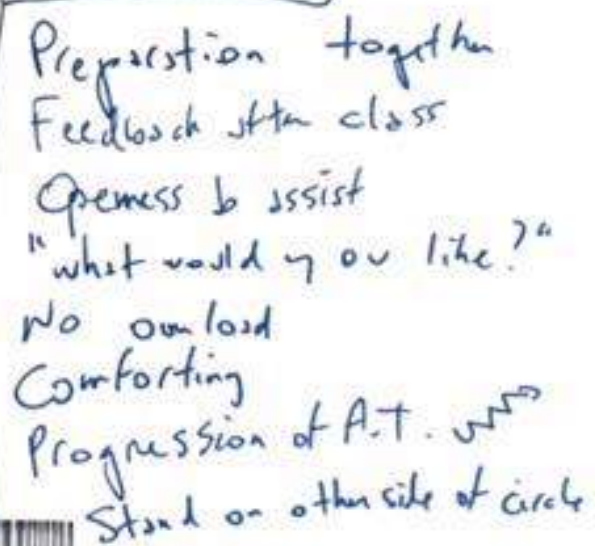 Preparation together
Feedback after class
Openness to assist
"what would you like?"
No overload
Comforting
Progression of A.T.
Stand on other side of circle